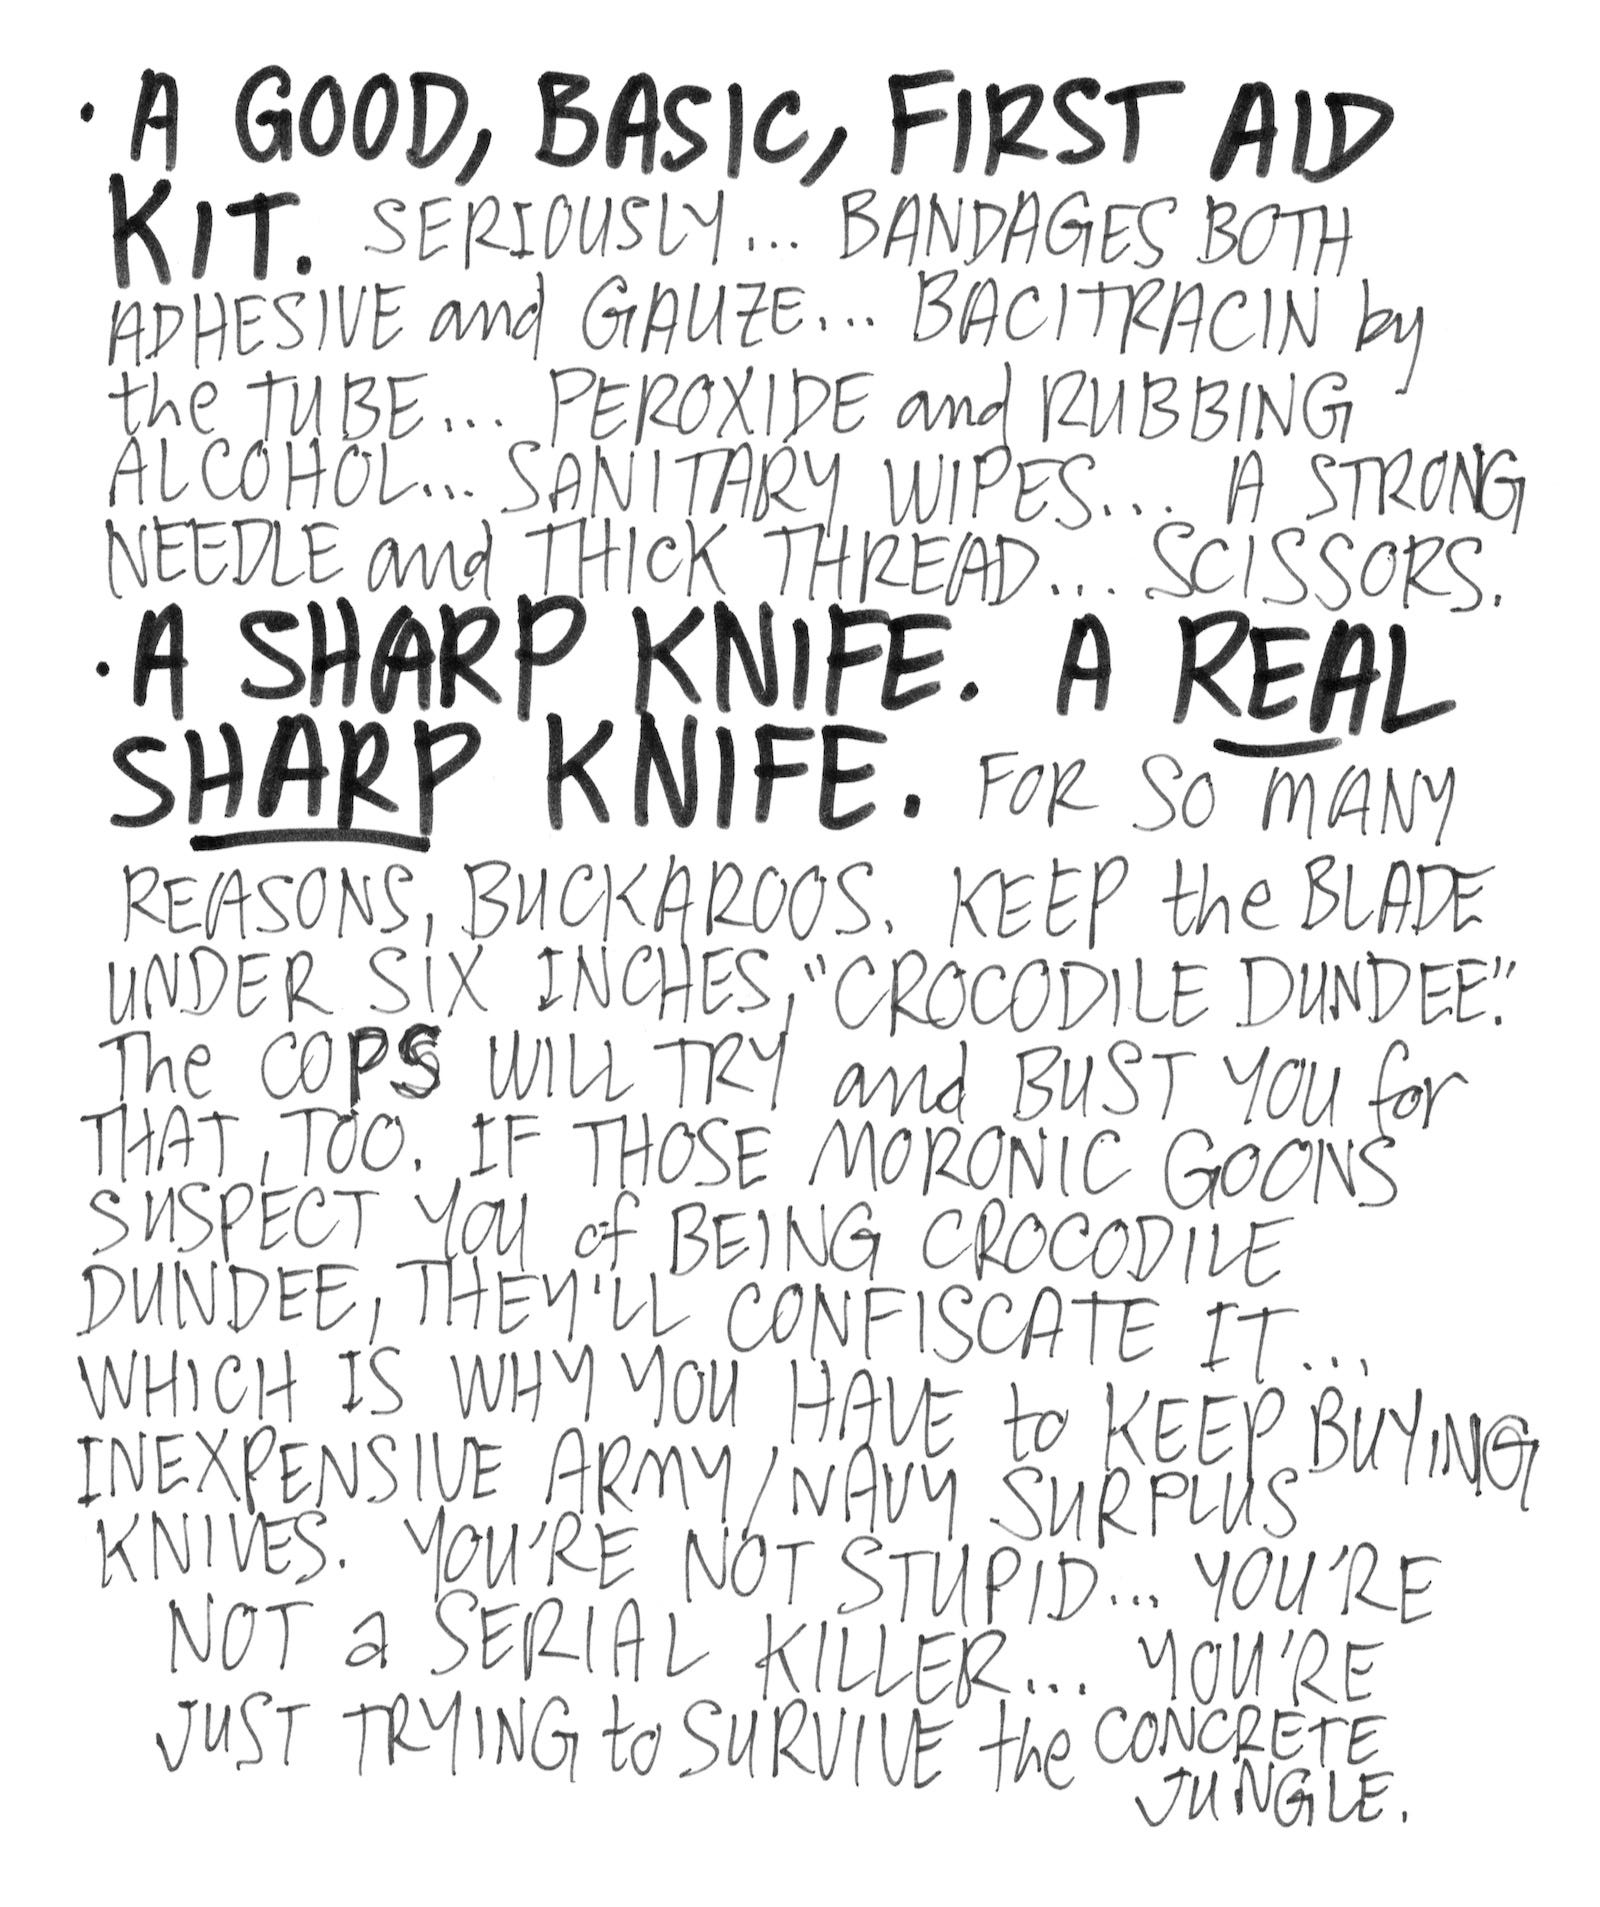 · A GOOD, BASIC, FIRST AID
KIT. SERIOUSLY... BANDAGES BOTH
ADHESIVE and GAUZE... BACITRACIN by
the TUBE... PEROXIDE and RUBBING
ALCOHOL... SANITARY WIPES... A STRONG
NEEDLE and THICK THREAD... SCISSORS.
· A SHARP KNIFE. A REAL
SHARP KNIFE. FOR SO MANY
REASONS, BUCKAROOS. KEEP the BLADE
UNDER SIX INCHES, "CROCODILE DUNDEE."
The COPS WILL TRY and BUST YOU for
THAT, TOO. IF THOSE MORONIC GOONS
SUSPECT YOU of BEING CROCODILE
DUNDEE, THEY'LL CONFISCATE IT...
WHICH IS WHY YOU HAVE to KEEP BUYING
INEXPENSIVE ARMY/NAVY SURPLUS
KNIVES. YOU'RE NOT STUPID... YOU'RE
NOT a SERIAL KILLER... YOU'RE
JUST TRYING to SURVIVE the CONCRETE
JUNGLE.